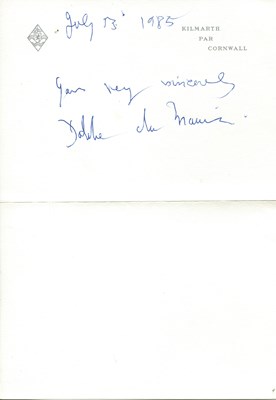 July 13 1985
KILMARTH
PAR
CORNWALL
Yours very sincerely
Daphne du Maurier